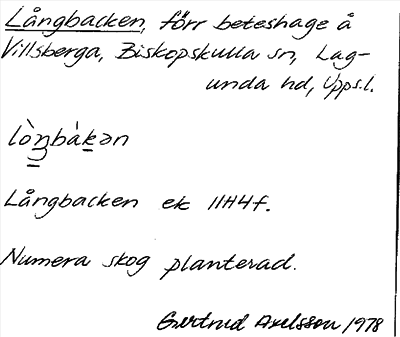 Långbacken, förr beteshage å
Villsberga, Biskopskulla sn, Lag-
unda hd, Upps.l.
lòŋbákən
Långbacken ek 11H4f.
Numera skog planterad.
Gertrud Axelsson 1978